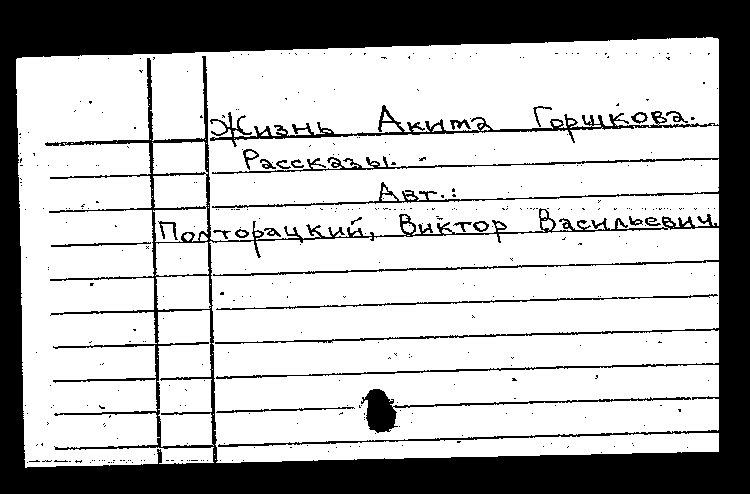 Жизнь Акима Горшкова.
Рассказы. -
Авт.:
Полторацкий, Виктор Васильевич.